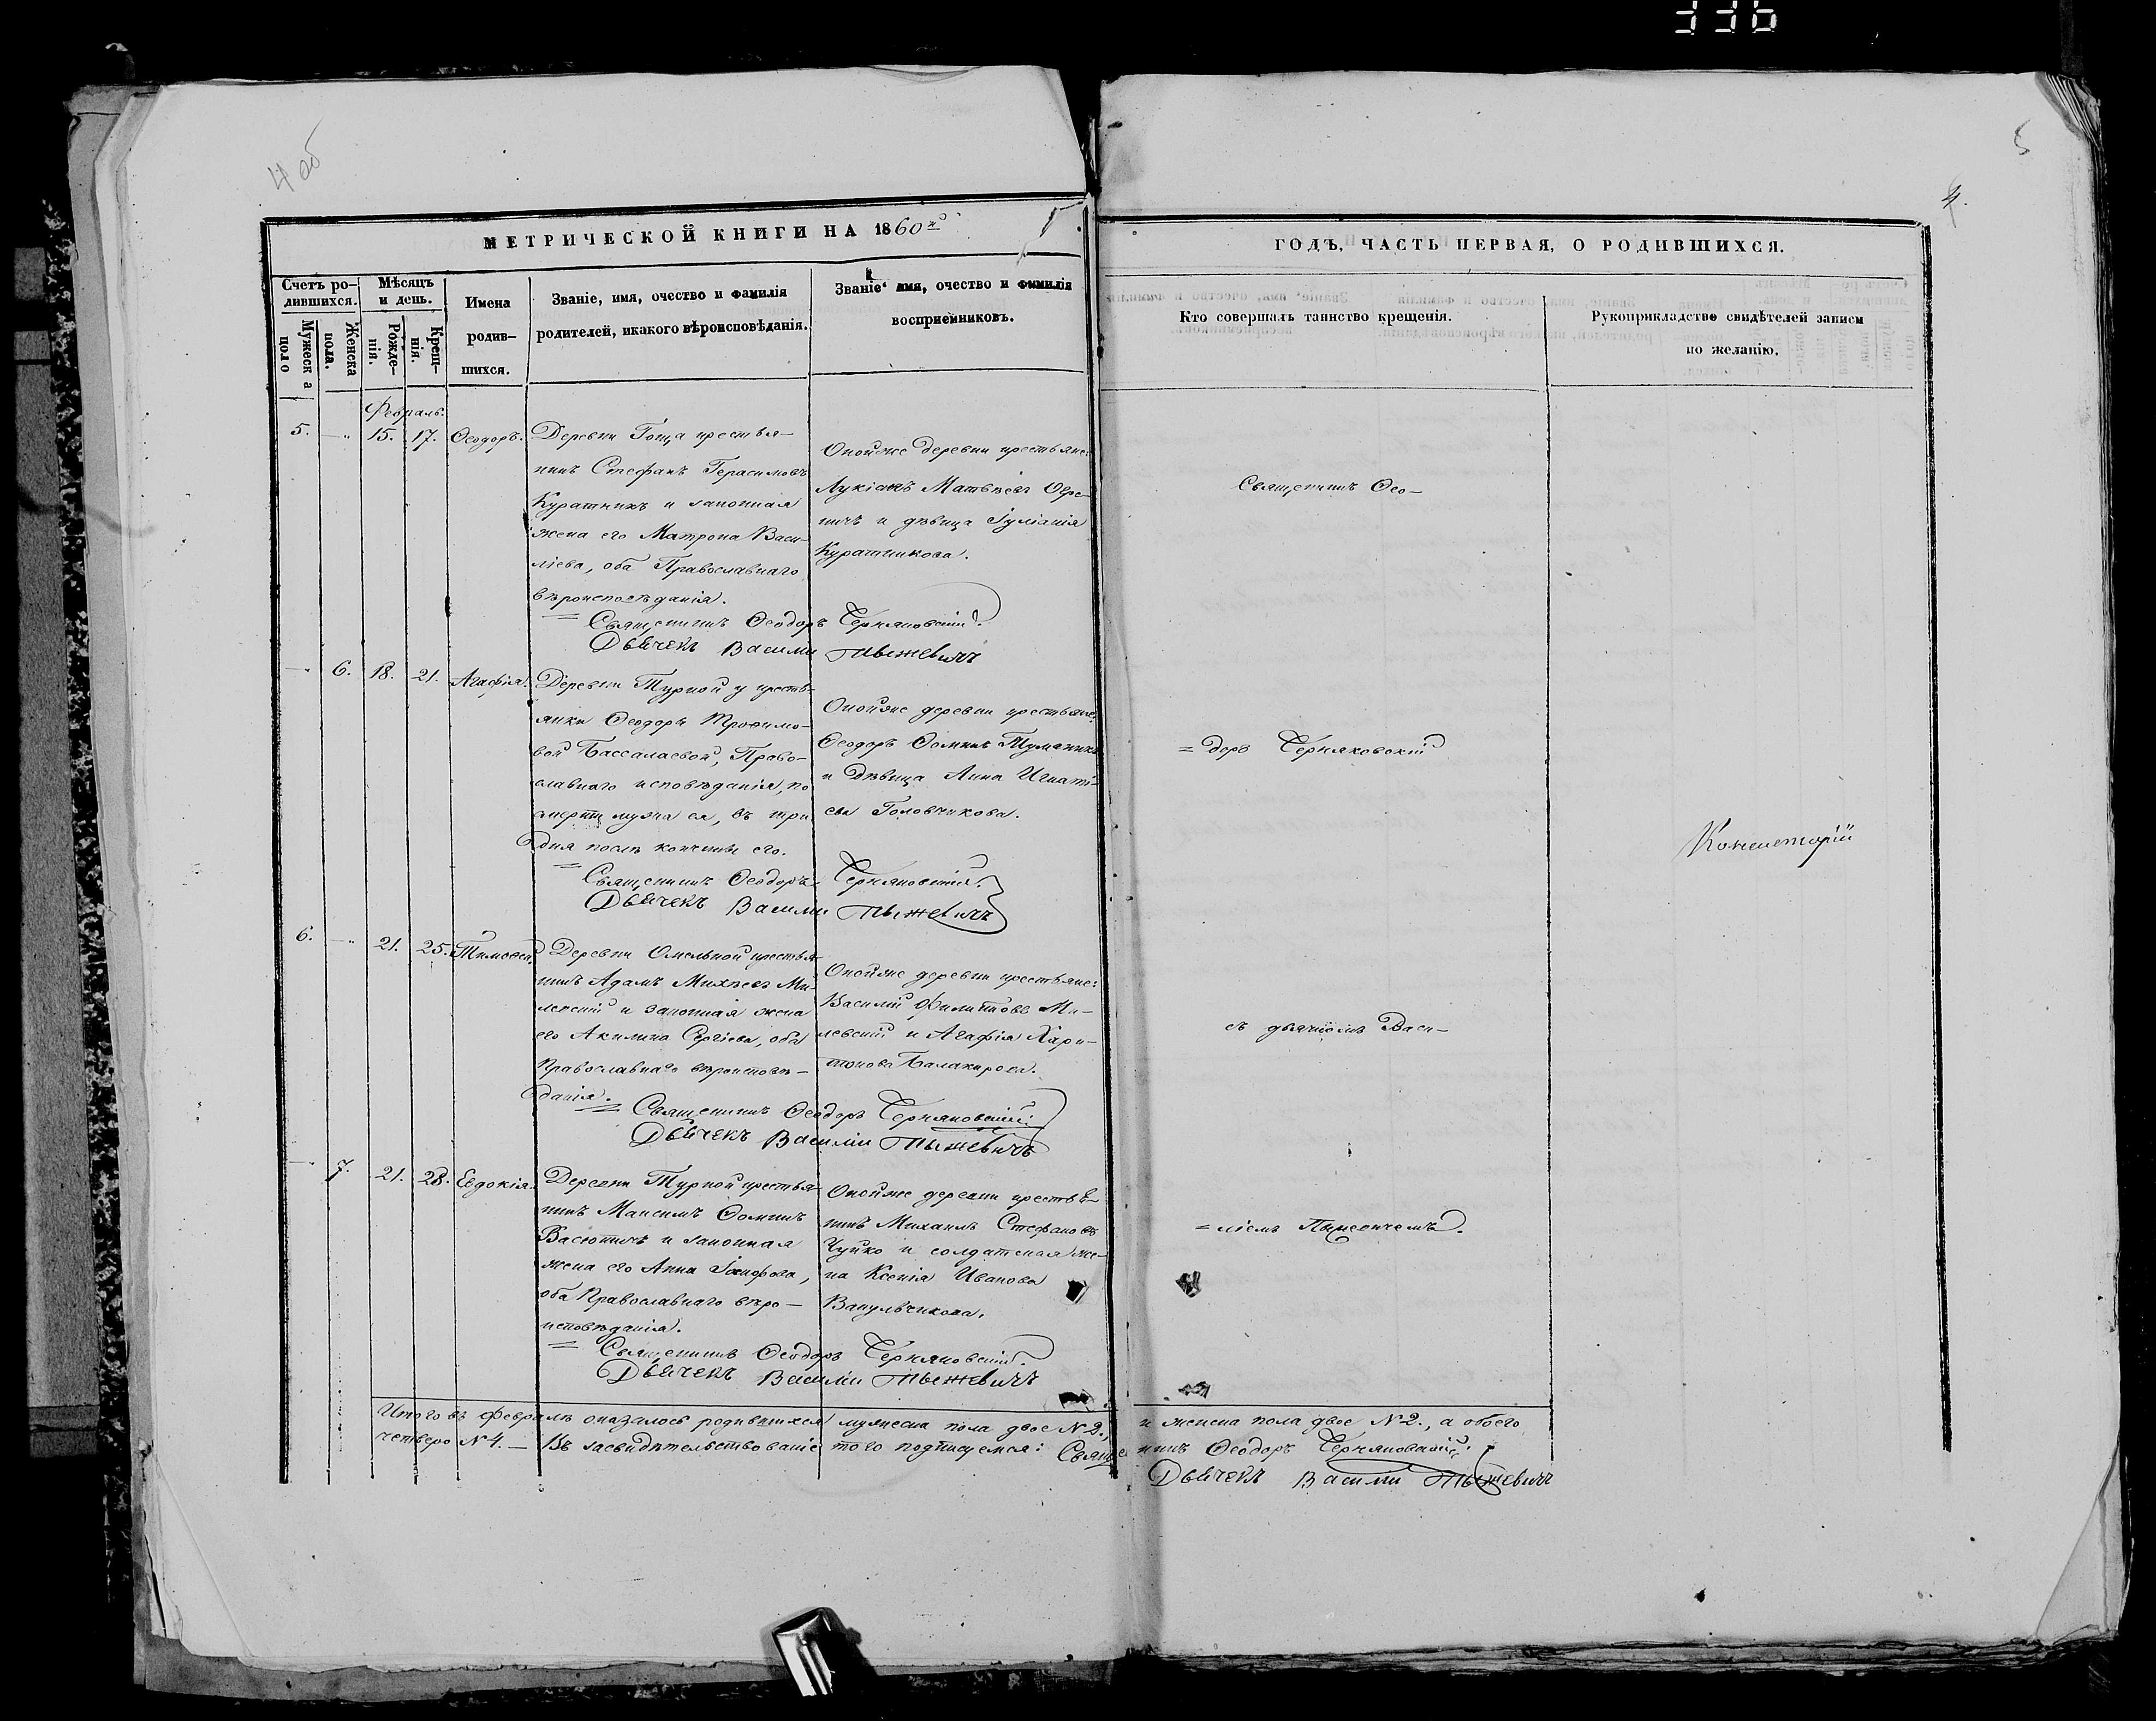 336
4 об
5
4.
МЕТРИЧЕСКОЙ КНИГИ НА 1860й
ГОДЪ, ЧАСТЬ ПЕРВАЯ, О РОДИВШИХСЯ.
Счетъ ро-
дившихся.
Мужеска
пола
Женска
пола.
Мѣсяцъ
и день.
Рожде-
нія.
Крещ-
нія.
Имена
родив-
шихся.
Званіе, имя, очество и фамилія
родителей, и какого вѣроисповѣданія.
Званіе имя, очество и фамилія
восприемниковъ.
Кто совершалъ таинство крещенія.
Рукоприкладство свидѣтелей записи
по желанію.
Февраль.
5. — 15. 17. Ѳеодоръ.
Деревни Гоща крестья-
нинъ Стефанъ Герасимовъ
Куратникъ и законная
жена его Матрона Васи-
ліева, оба Православнаго
вѣроисповѣданія.
Онойже деревни крестьяне:
Лукіанъ Матвѣевъ
и дѣвица Іуліанія
Куратникова.
Священникъ Ѳеодоръ Черняковскій.
Дьячекъ Василий Тыжевичъ
— 6. 18. 21. Агафія.
Деревни Турной у кресть-
янки Ѳеодоры Трофимо-
вой Бассалаевой, Право-
славнаго исповѣданія, по
смерти мужа ея, въ три
дня послѣ кончины его.
Онойже деревни крестьяне:
Ѳеодоръ Ѳоминъ
и Дѣвица Анна Игнатi-
ева Головчикова.
Священникъ Ѳеодоръ Черняковскій.
Дьячекъ Василий Тыжевичъ
6. — 21. 25. Тимофей.
Деревни Омельной крестья-
нинъ Адамъ Михѣевъ Ми-
левскій и законная жена
его Акилина Сергіева, оба
Православнаго вѣроисповѣ-
данія.
Онойже деревни крестьяне:
Василій Филиповъ Ми-
левскій и Агафія Хари-
тонова Балакирова.
Священникъ Ѳеодоръ Черняковскій.
Дьячекъ Василій Тыжевичъ
— 7. 21. 28. Евдокія.
Деревни Турной крестья-
нинъ Максимъ Ѳоминъ
Васютичъ и законная
жена его Анна
оба Православнаго вѣро-
исповѣданія.
Онойже деревни крестья-
нинъ Михаилъ Стефановъ
Чуйко и солдатская же-
на Ксенія Иванова
Вакульчикова.
Священникъ Ѳеодоръ Черняковскій.
Дьячекъ Василій Тыжевичъ
Священникъ Ѳео-
=доръ Черняковскій
съ дьячкомъ Васи-
=ліемъ Тыжевичемъ.
Консисторій
Итого въ Февралѣ оказалось родившихся мужеска пола двое №2., и женска пола двое №2., а обоего
четверо №4. — Въ засвидѣтельствованіе того подписуемся: Священникъ Ѳеодоръ Черняковскій.
Дьячекъ Василий Тыжевичъ